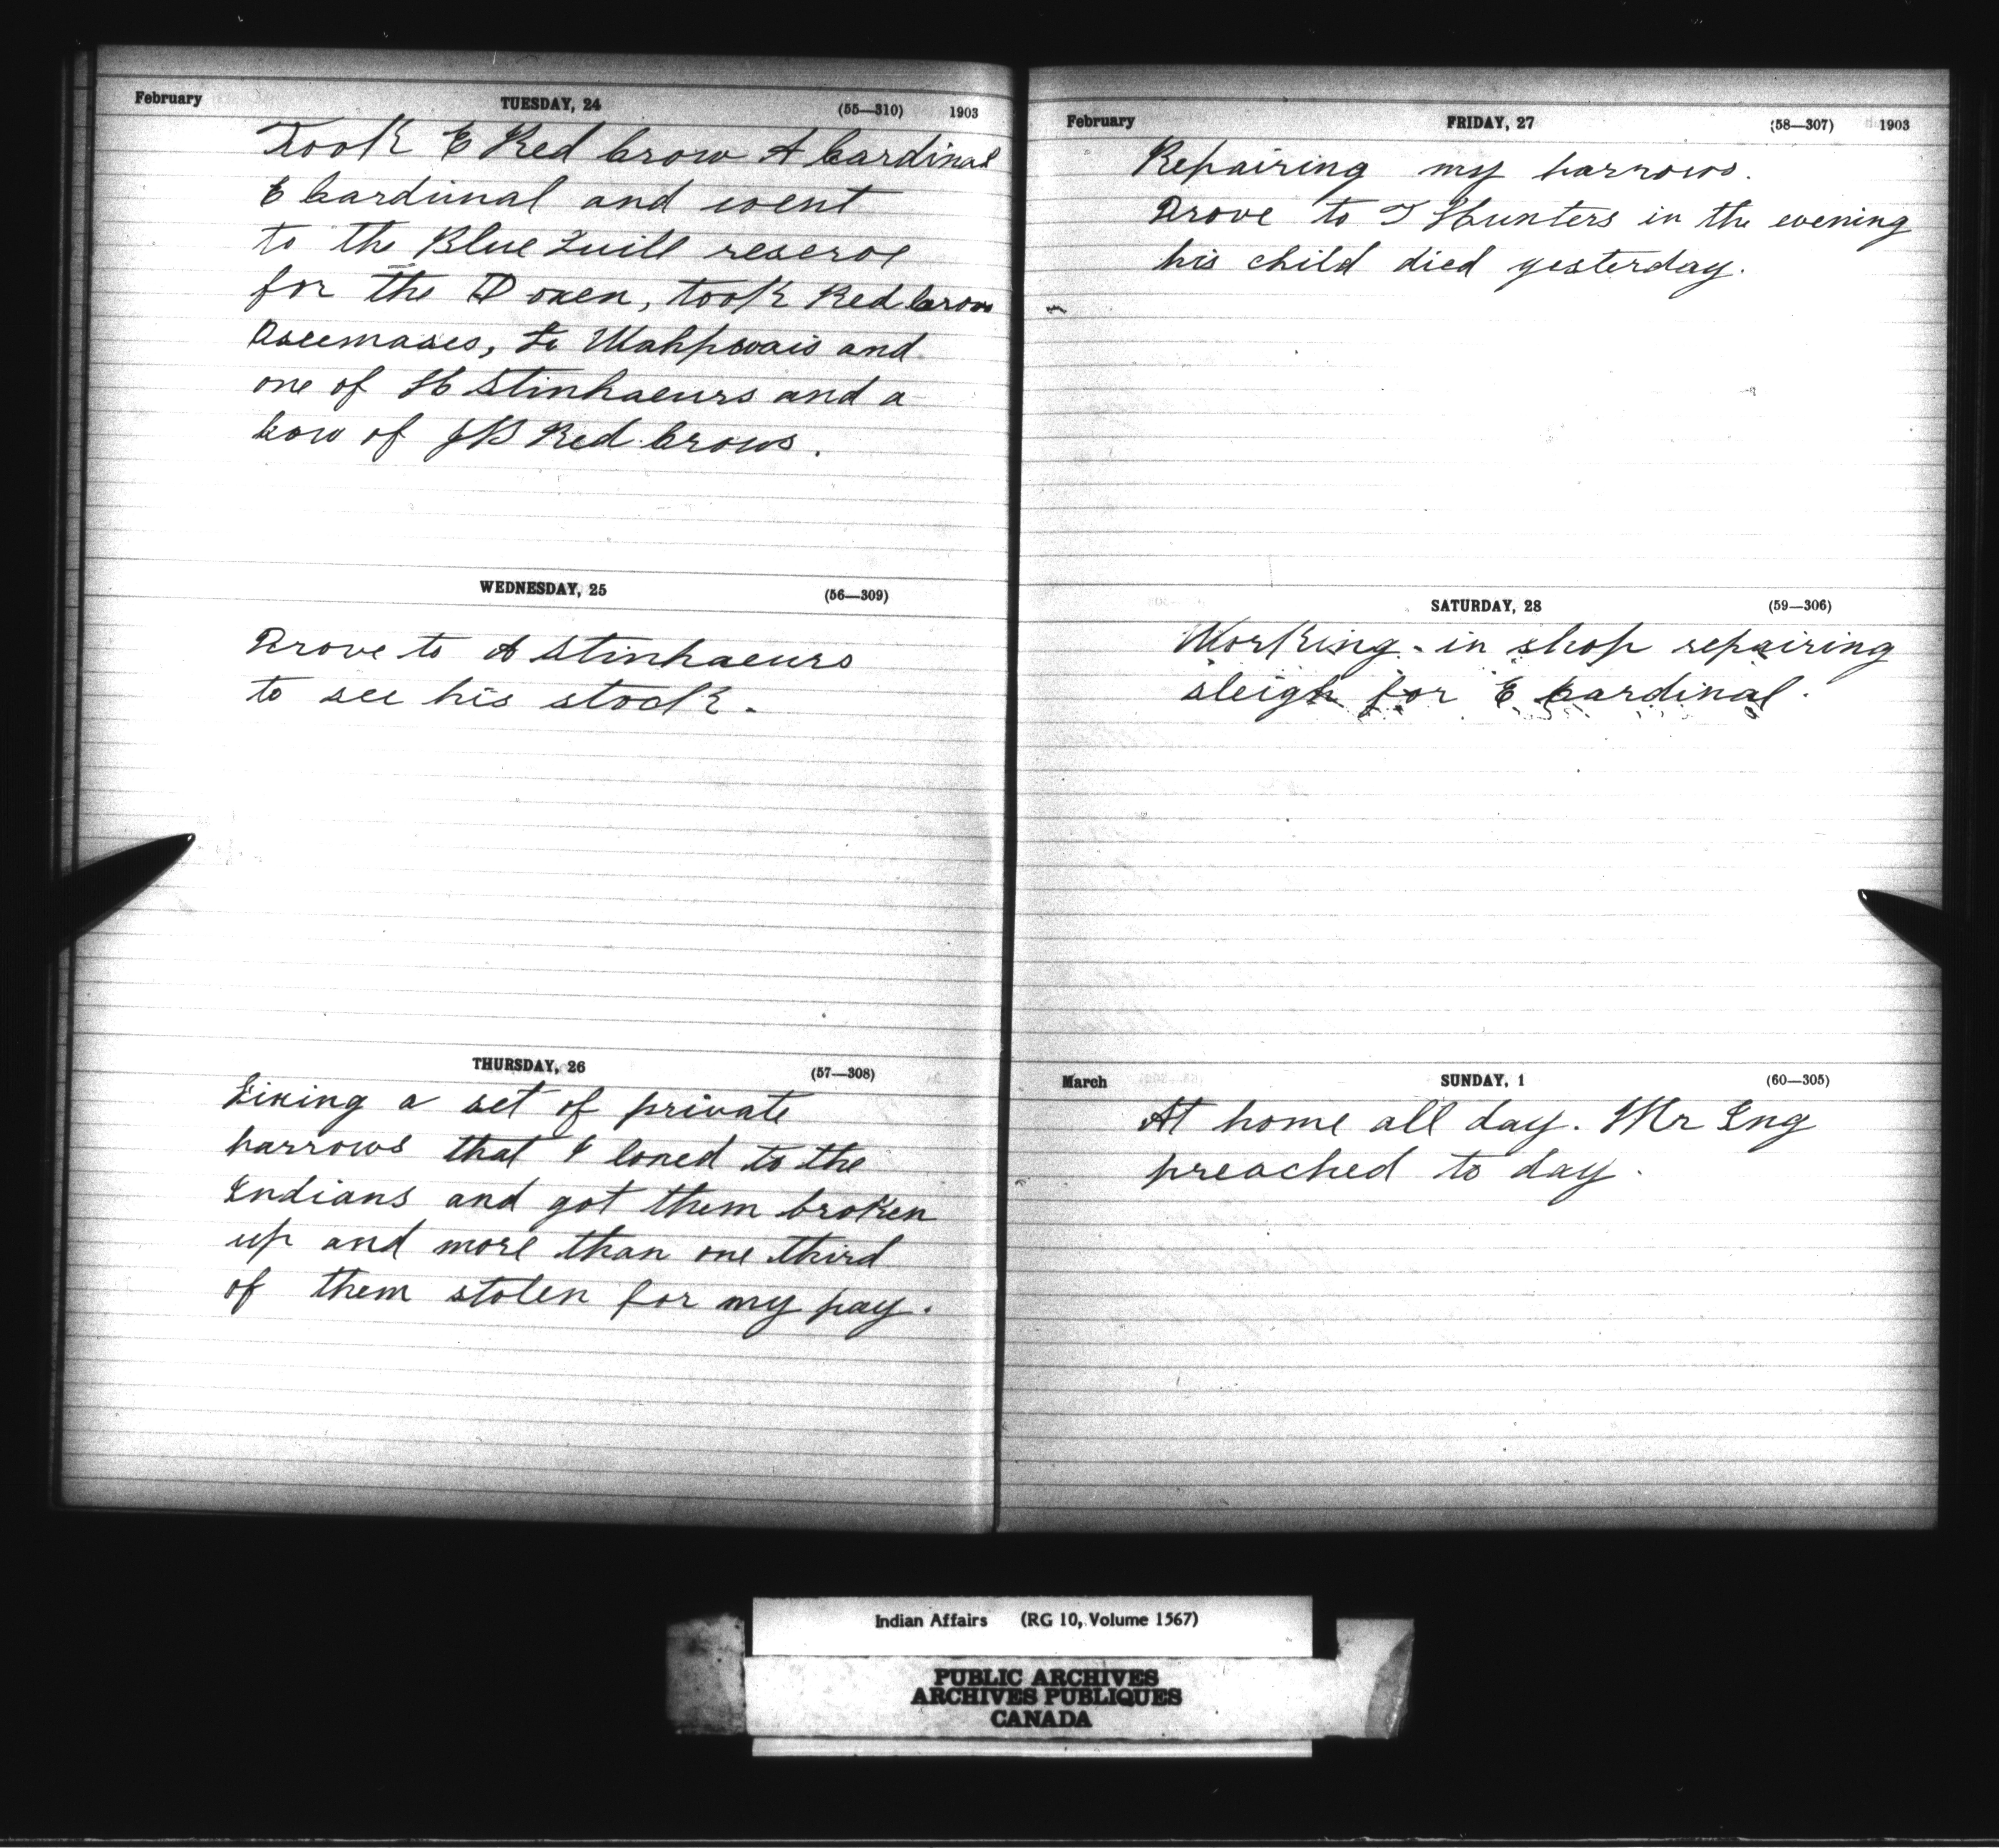 February TUESDAY, 24 (55—310) 1903
Took E Red Crow A Cardinal
E Cardinal and went
to the Blue Quill reserve
for the ID oxen, took Red Crow
to Wahpwais and
one of H Stinhaeurs and a
Cow of JB Red Crows.
WEDNESDAY, 25 (56—309)
Drove to A Stinhaeurs
to see his stock.
THURSDAY, 26 (57—308)
Fixing a set of private
harrows that I loned to the
Indians and got them broken
up and more than one third
of them stolen for my pay.
February FRIDAY, 27 (58—307) 1903
Repairing my harrows.
Drove to T Hunters in the evening
his child died yesterday.
SATURDAY, 28 (59—306)
Working in shop repairing
sleigh for E Cardinal.
March SUNDAY, 1 (60—305)
At home all day. Mr Ing
preached to day.
Indian Affairs (RG 10, Volume 1567)
PUBLIC ARCHIVES
ARCHIVES PUBLIQUES
CANADA